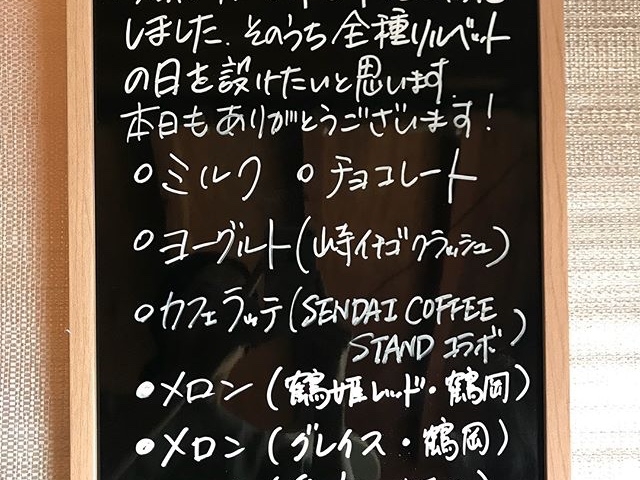 しました。そのうち全種ソルベット
の日を設けたいと思います。
本日もありがとうございます!
○ミルク ○チョコレート
○ヨーグルト(山寺イチゴクラッシュ)
○カフェラッテ(SENDAI COFFEE
STAND コラボ)
●メロン(鶴姫レッド・鶴岡)
●メロン(グレイス・鶴岡)